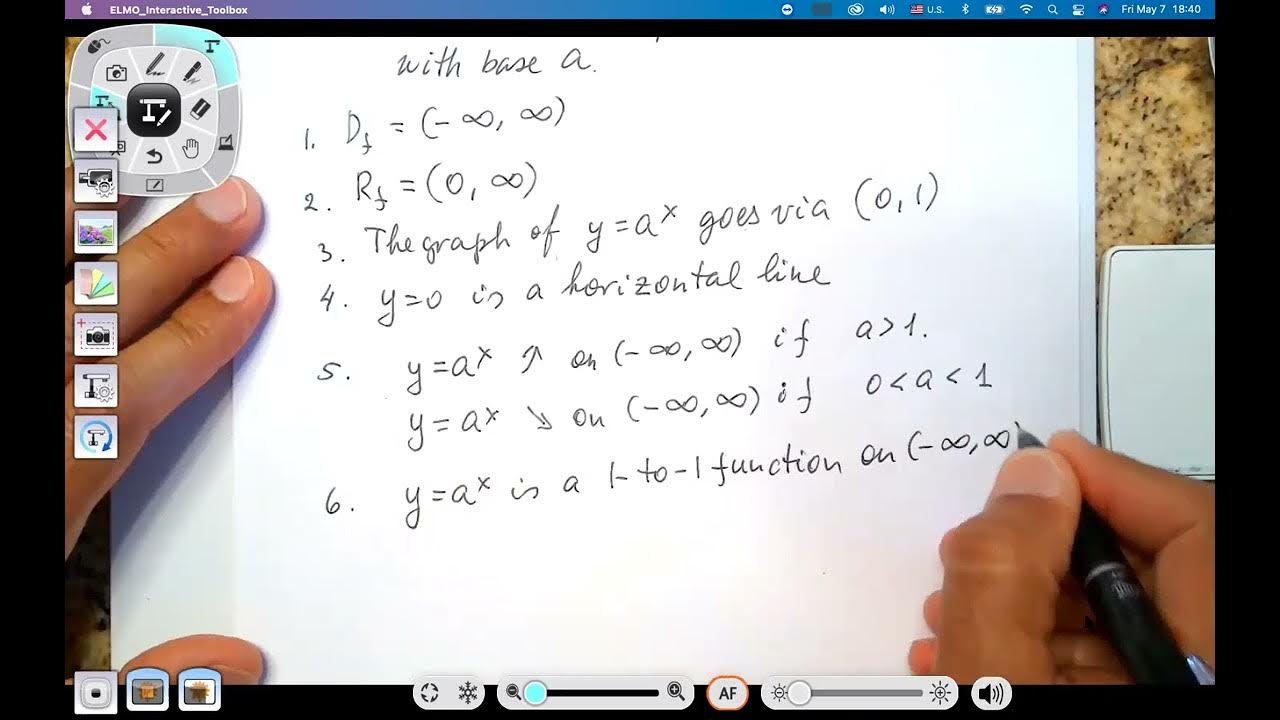 ELMO_Interactive_Toolbox U.S. Fri May 7 18:40
with base a.
1. D_f = (-∞, ∞)
2. R_f = (0, ∞)
3. The graph of y = a^x goes via (0, 1)
4. y=0 is a horizontal line
5. y=a^x ↗ on (-∞, ∞) if a>1.
y=a^x ↘ on (-∞, ∞) if 0<a<1
6. y=a^x is a 1-to-1 function on (-∞, ∞)
AF